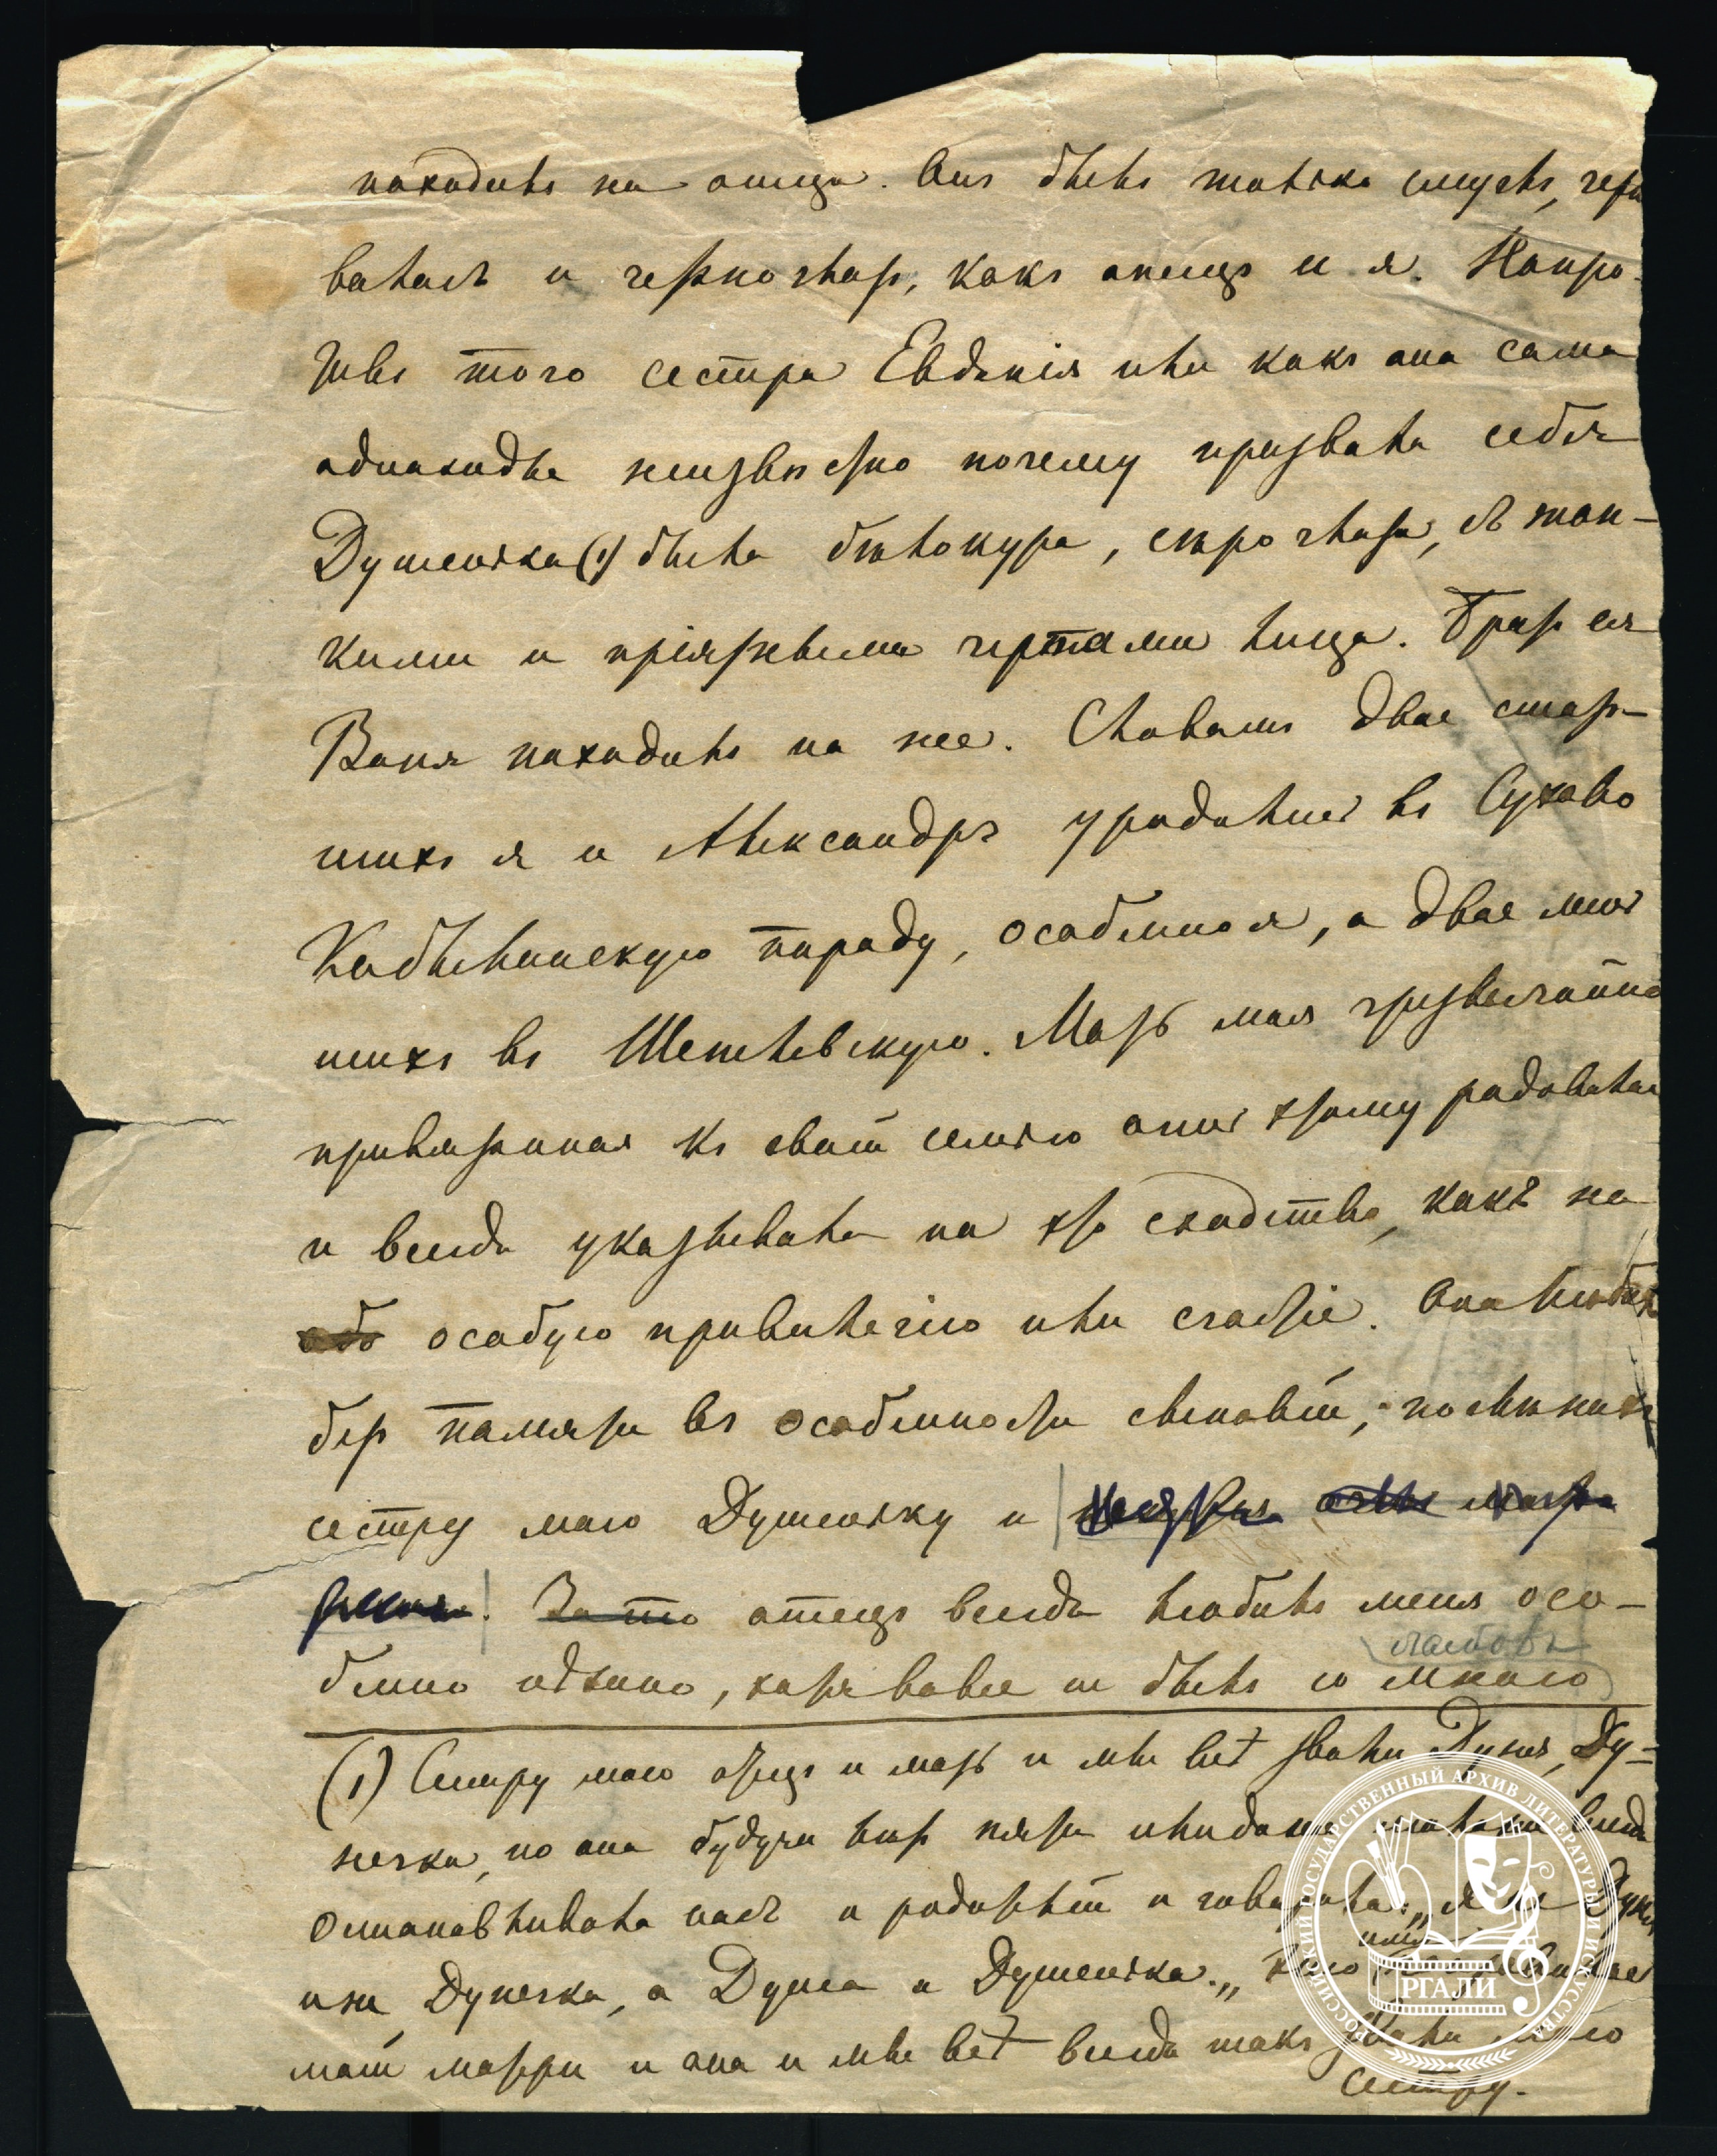 походилъ на отца. Онъ былъ также смуглъ, черно
волосъ и черноглазъ, какъ отецъ и я. Напро-
тивъ того сестра Евдокія или какъ она сама
однажды неизвѣстно почему прозвала себя
Душенька (1) была бѣлокура, сѣроглаза, съ тон-
кими и пріятными чертами лица. Братъ ея
Ваня походилъ на нее. Словомъ двое стар-
шихъ я и Александръ уродились въ Сухово
Кобылинскую породу, особенно я, а двое млад
шихъ въ Шепелевскую. Мать моя чрезвычайно
привязанная къ своей семьѣ очень этому радовалась
и всегда указывала на это сходство, какъ на
особую привилегію или счастіе. Она любила
безъ памяти въ особенности сыновей, послѣ нихъ
сестру мою Душеньку и
За то отецъ всегда любилъ меня осо-
бенно нѣжно, хотя вовсе не былъ со мною
ласковъ
(1) Сестру мою отецъ и мать и мы всѣ звали Дуня, Ду-
нечка, но она будучи лѣтъ пяти всегда
останавливала насъ и говорила: „я не Дуня,
или Дунечка, а Душа и Душенька.„
моей матери и она и мы всѣ всегда такъ звали мою
сестру.
РОССИЙСКИЙ ГОСУДАРСТВЕННЫЙ АРХИВ ЛИТЕРАТУРЫ И ИСКУССТВА
РГАЛИ